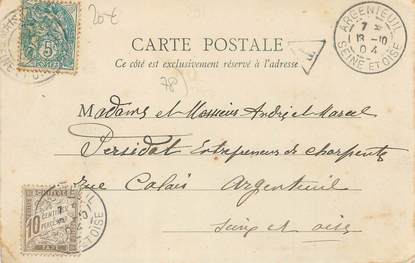 20€
5
ARGENTEUIL
7
13 -10
04
SEINE ET OISE
CARTE POSTALE
Ce côté est exclusivement réservé à l'adresse
T
78
Madame et Messieurs André et Marcel
Persidat Entrepreneurs de charpente
rue Calais Argenteuil
Seine et oise
CHIFFRE
10
CENTIMES
À PERCEVOIR
TAXE
SEINE ET OISE